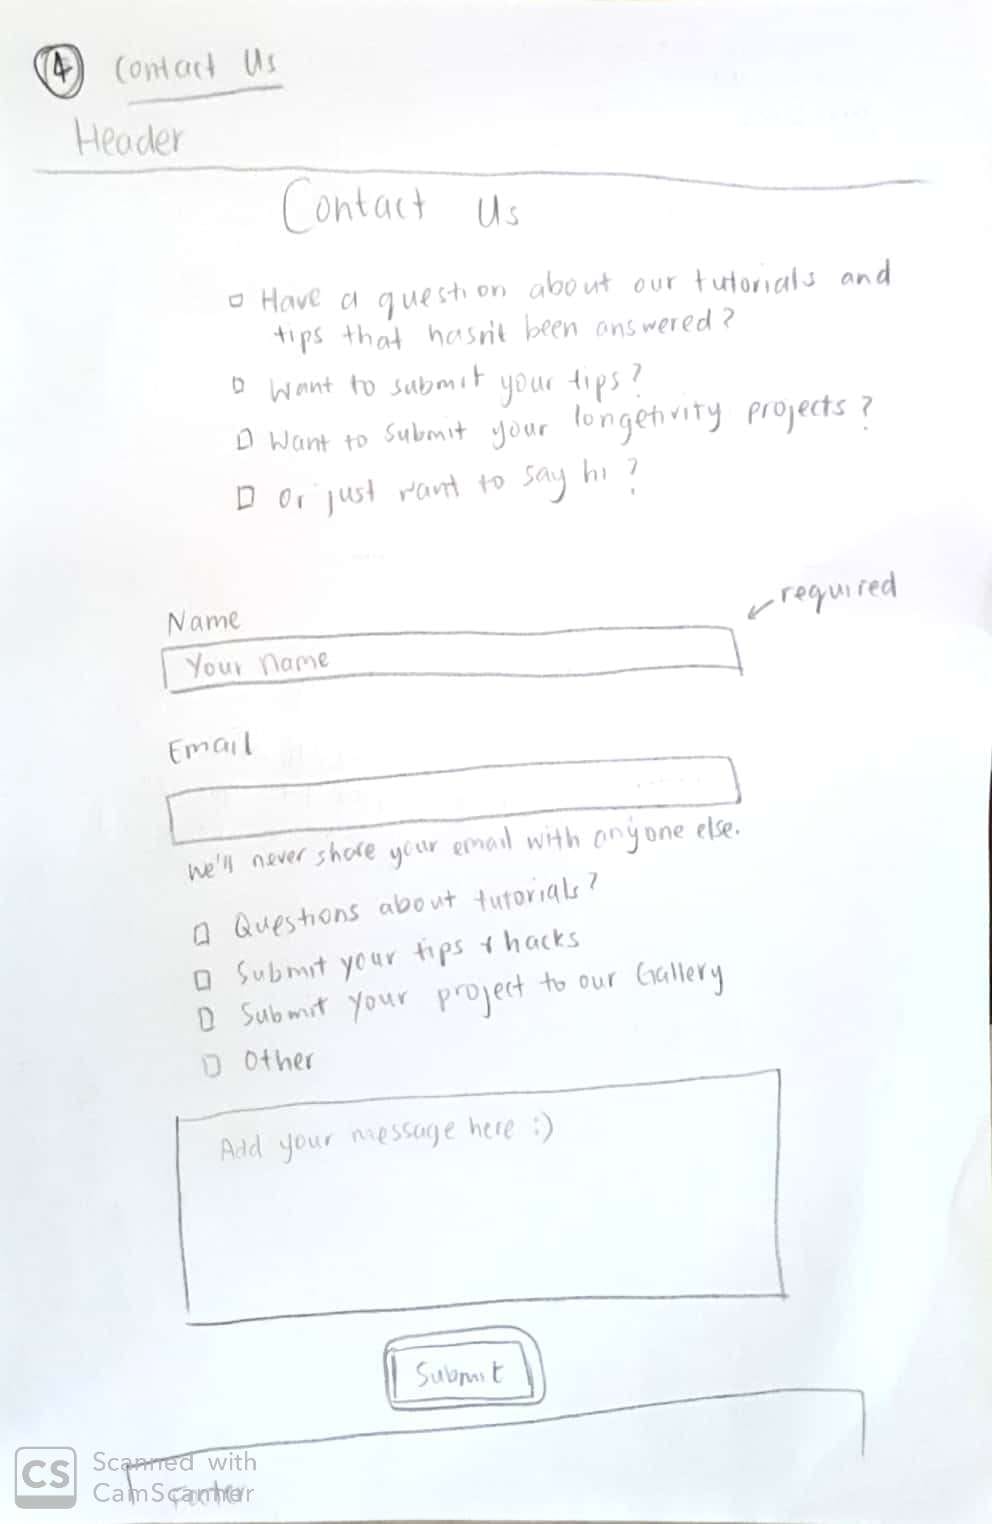 4 Contact Us
Header
Contact Us
Have a question about our tutorials and
tips that hasn't been answered?
Want to submit your tips?
Want to submit your longetivity projects?
Or just want to say hi?
required
Name
Your name
Email
We'll never share your email with anyone else.
Questions about tutorials?
Submit your tips & hacks
Submit your project to our Gallery
Other
Add your message here :)
Submit
Footer
CS Scanned with
CamScanner